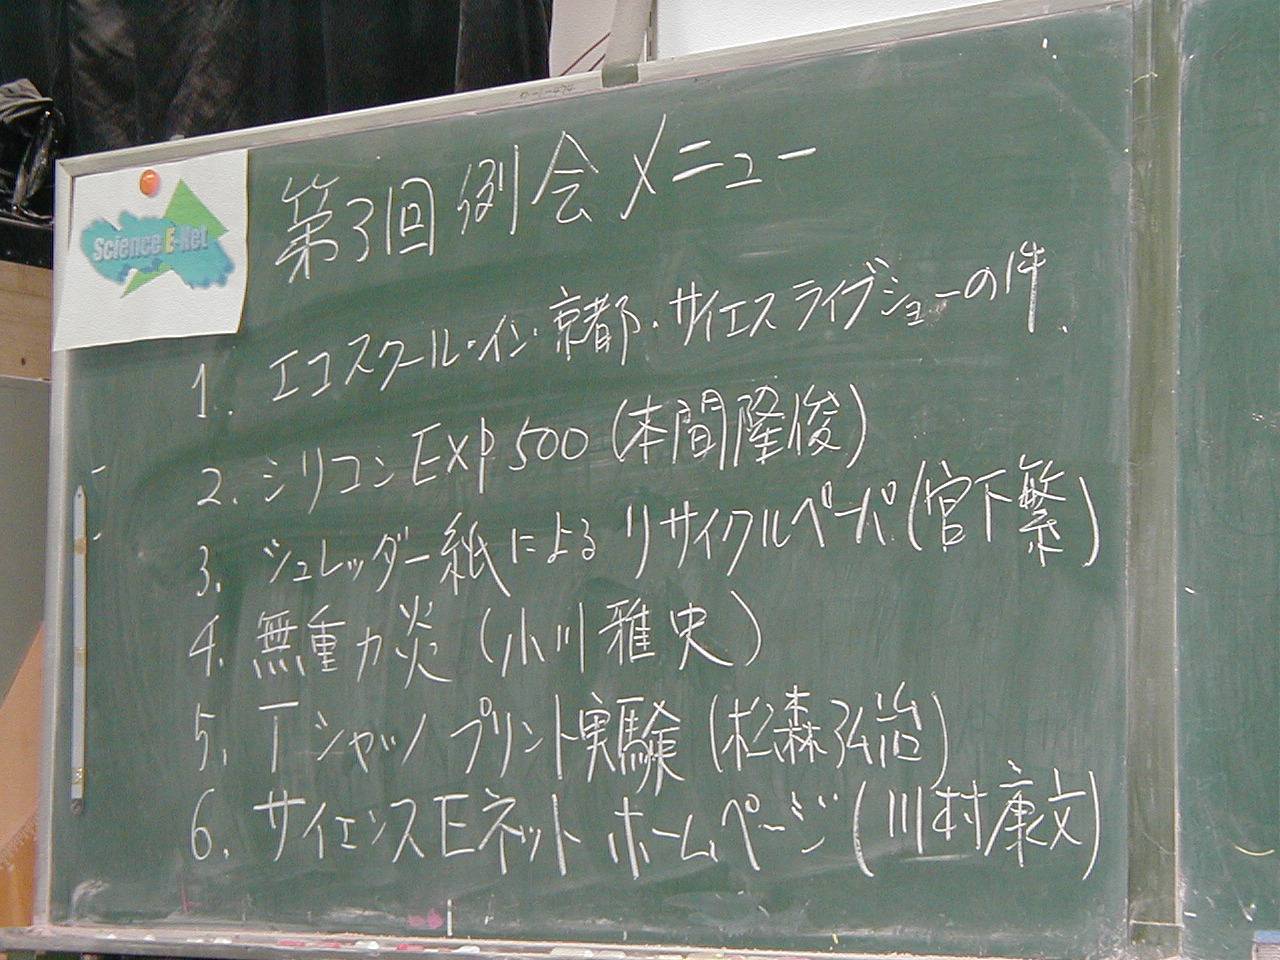 Science E-Net
第3回例会メニュー
1. エコスクール・イン・京都・サイエスライブショーの件
2. シリコンEXP500(本間隆俊)
3. シュレッダー紙によるリサイクルペーパ(宮下繁)
4. 無重力炎(小川雅史)
5. Tシャツプリント実験(杉森弘治)
6. サイエンスEネットホームページ(川村康文)